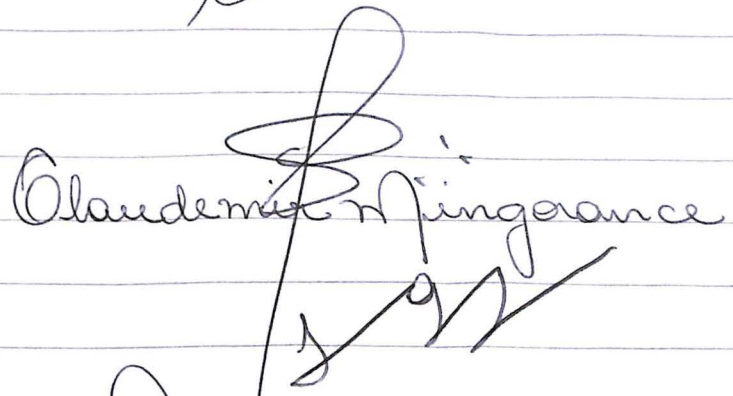 Claudemir Mingorance